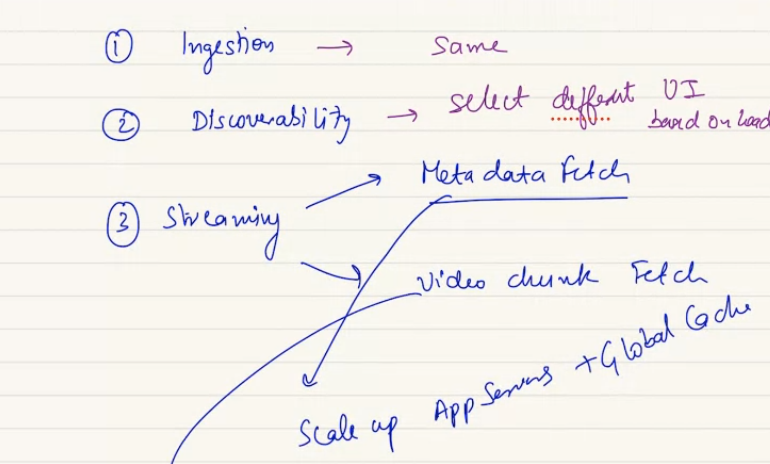 ① Ingestion → Same
② Discoverability → select different UI
based on load
Metadata Fetch
③ Streaming
Video chunk Fetch
Scale up App Servers + Global Cache